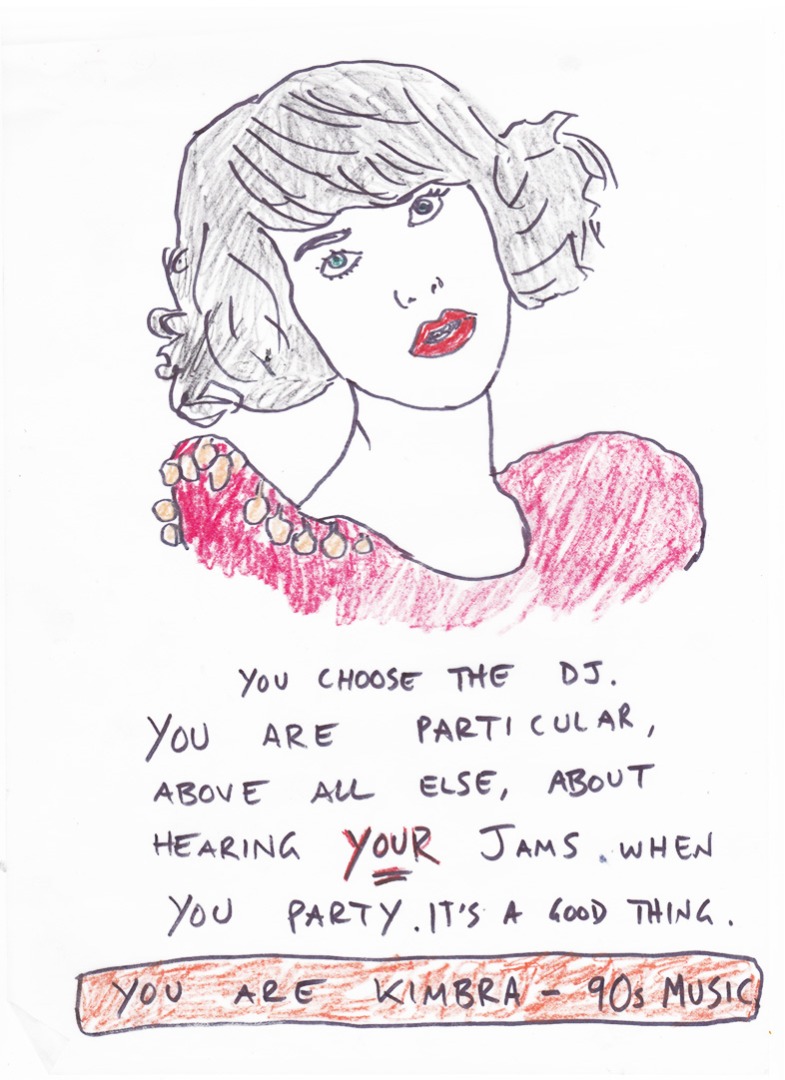 YOU CHOOSE THE DJ.
YOU ARE PARTICULAR,
ABOVE ALL ELSE, ABOUT
HEARING YOUR JAMS. WHEN
YOU PARTY. IT'S A GOOD THING.
YOU ARE KIMBRA - 90s MUSIC